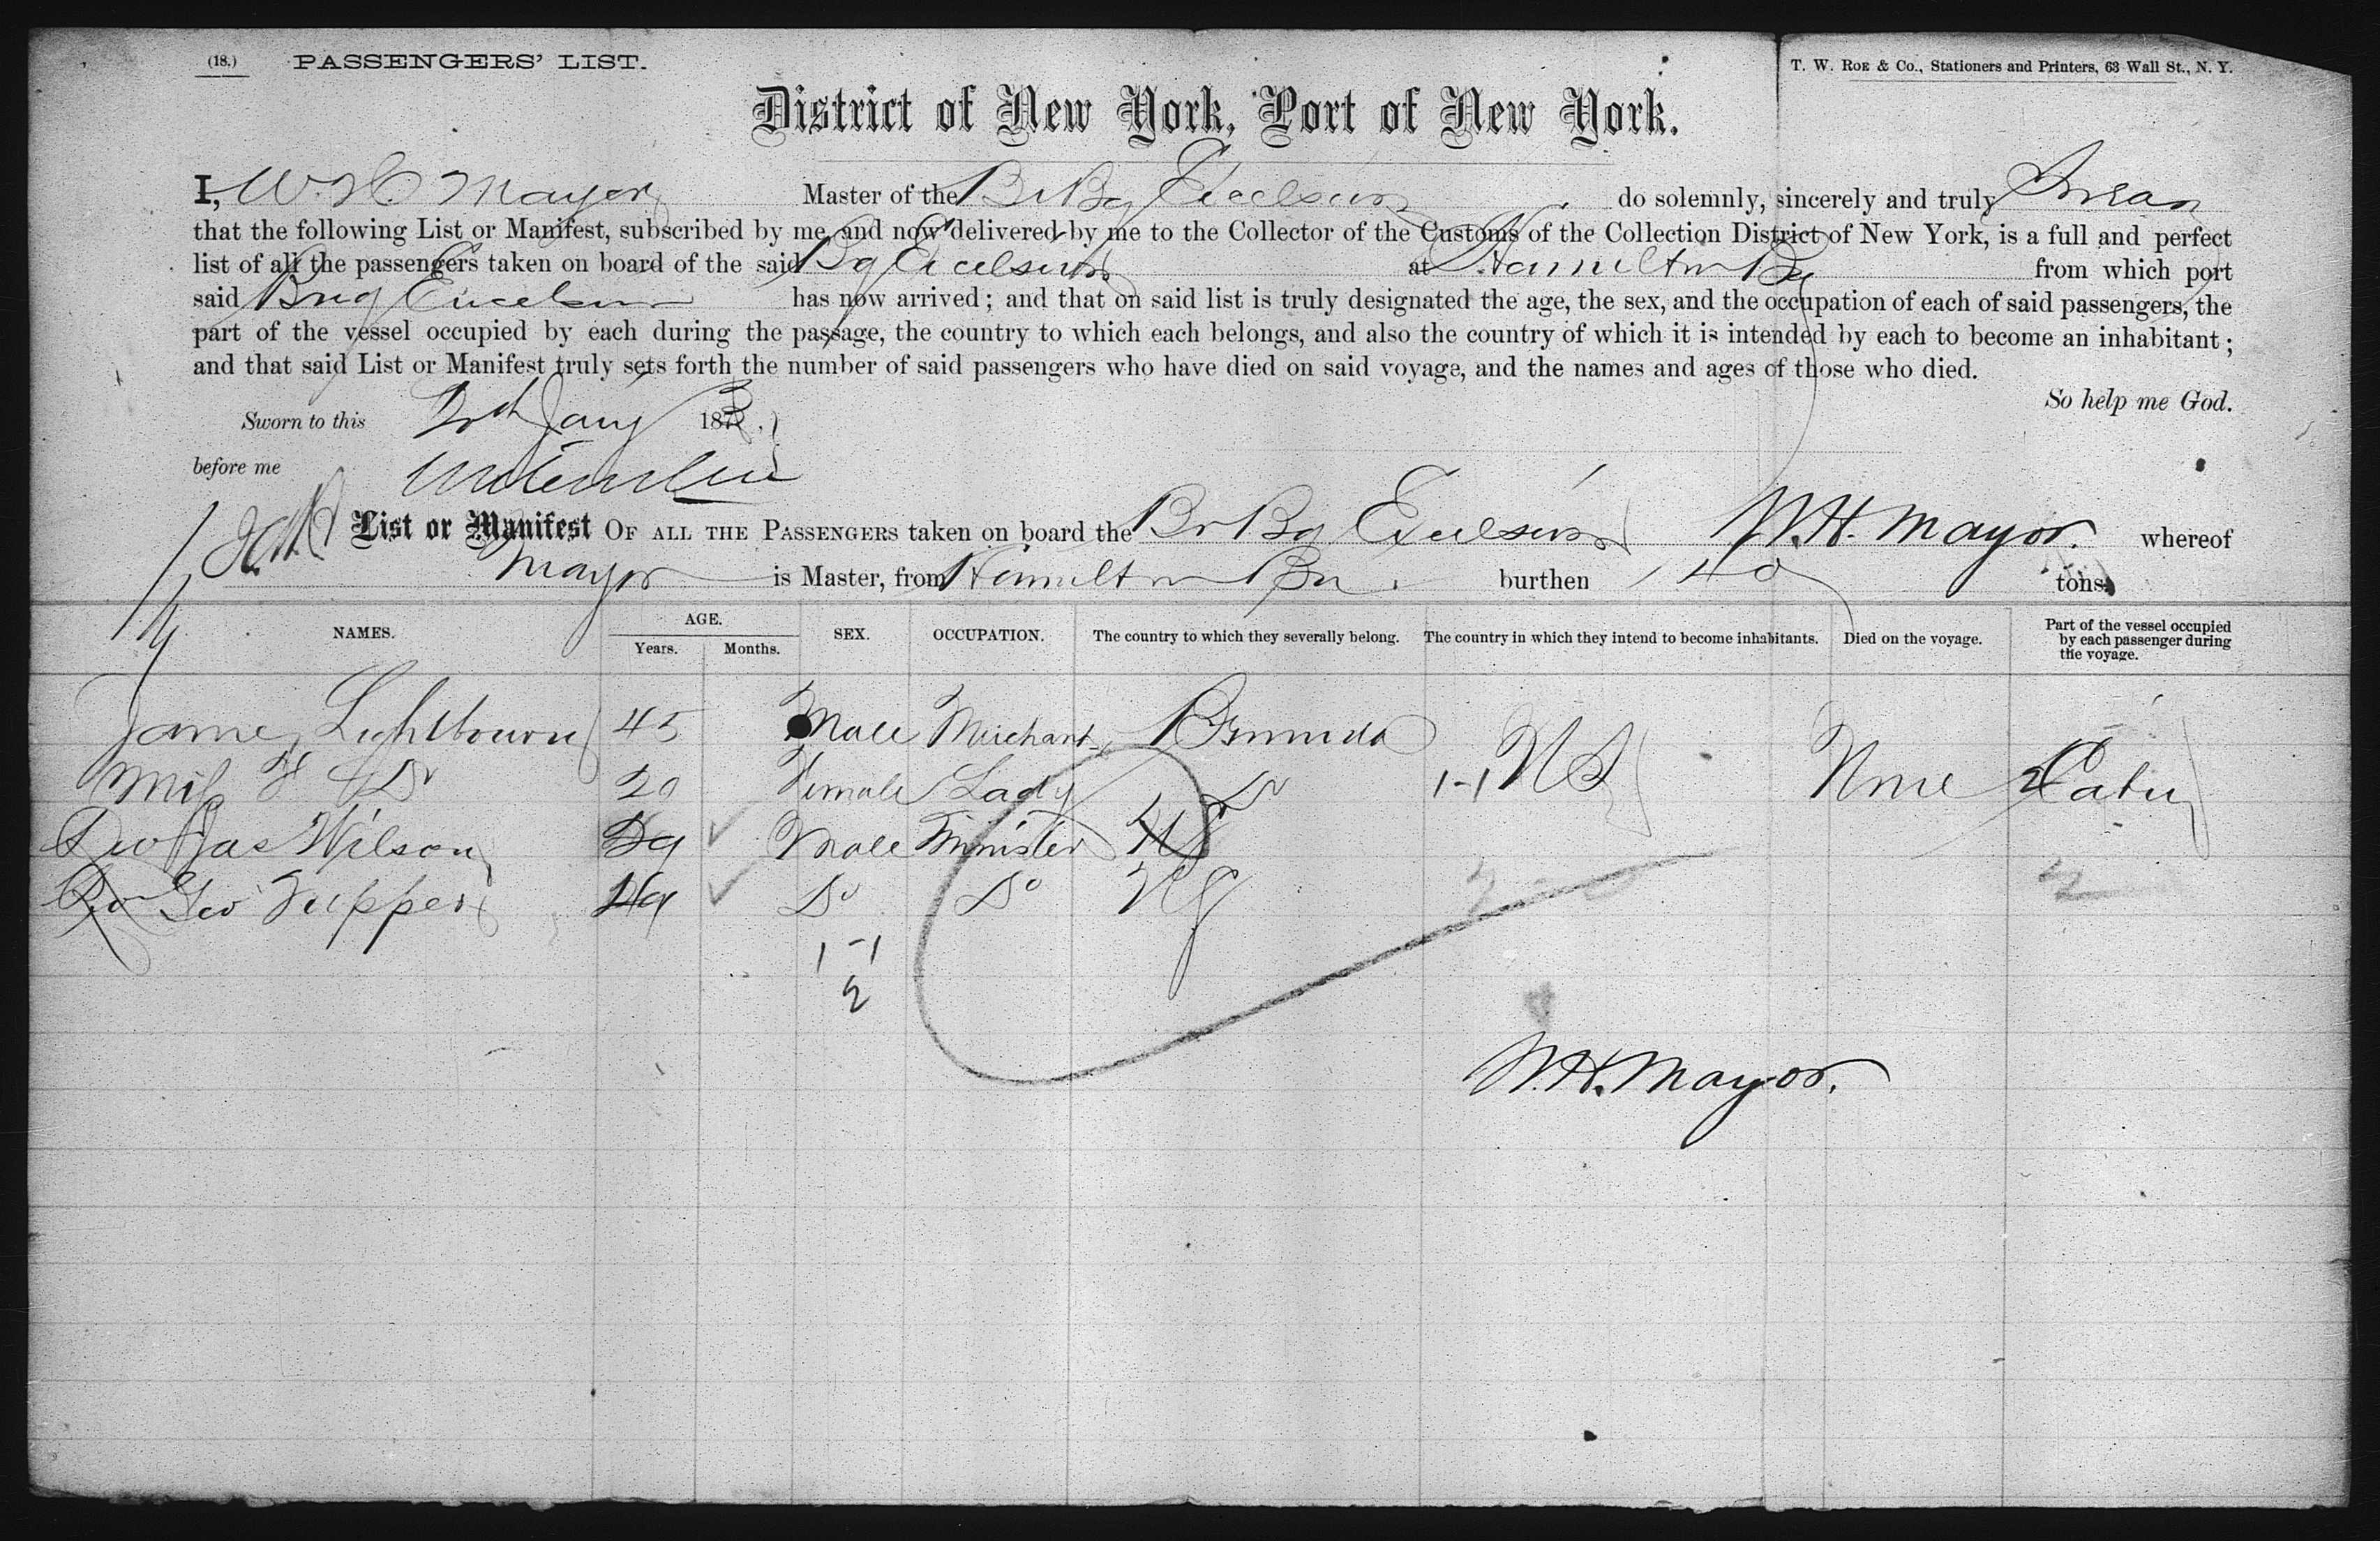 (18.) PASSENGERS' LIST. T. W. ROE & Co., Stationers and Printers, 63 Wall St., N. Y.
District of New York, Port of New York.
I, W. H. Mayor Master of the Br Bg Excelsior do solemnly, sincerely and truly Swear
that the following List or Manifest, subscribed by me and now delivered by me to the Collector of the Customs of the Collection District of New York, is a full and perfect
list of all the passengers taken on board of the said Bg Excelsior at Hamilton from which port
said Brig Excelsior has now arrived; and that on said list is truly designated the age, the sex, and the occupation of each of said passengers, the
part of the vessel occupied by each during the passage, the country to which each belongs, and also the country of which it is intended by each to become an inhabitant;
and that said List or Manifest truly sets forth the number of said passengers who have died on said voyage, and the names and ages of those who died.
So help me God.
Sworn to this 2nd Jany 1873.
before me
List or Manifest OF ALL THE PASSENGERS taken on board the Br Bg Excelsior W. H. Mayor. whereof
Mayor is Master, from Hamilton burthen 140 tons.
NAMES. AGE. SEX. OCCUPATION. The country to which they severally belong. The country in which they intend to become inhabitants. Died on the voyage. Part of the vessel occupied by each passenger during the voyage.
Years. Months.
James Lightbourn 45 Male Merchant Bermuda
Miss F Do 20 Female Lady Do 1-1 None 2
Rev Jas Wilson Male Minister
Rev Geo Tupper Do Do
1-1
2
W. H. Mayor.